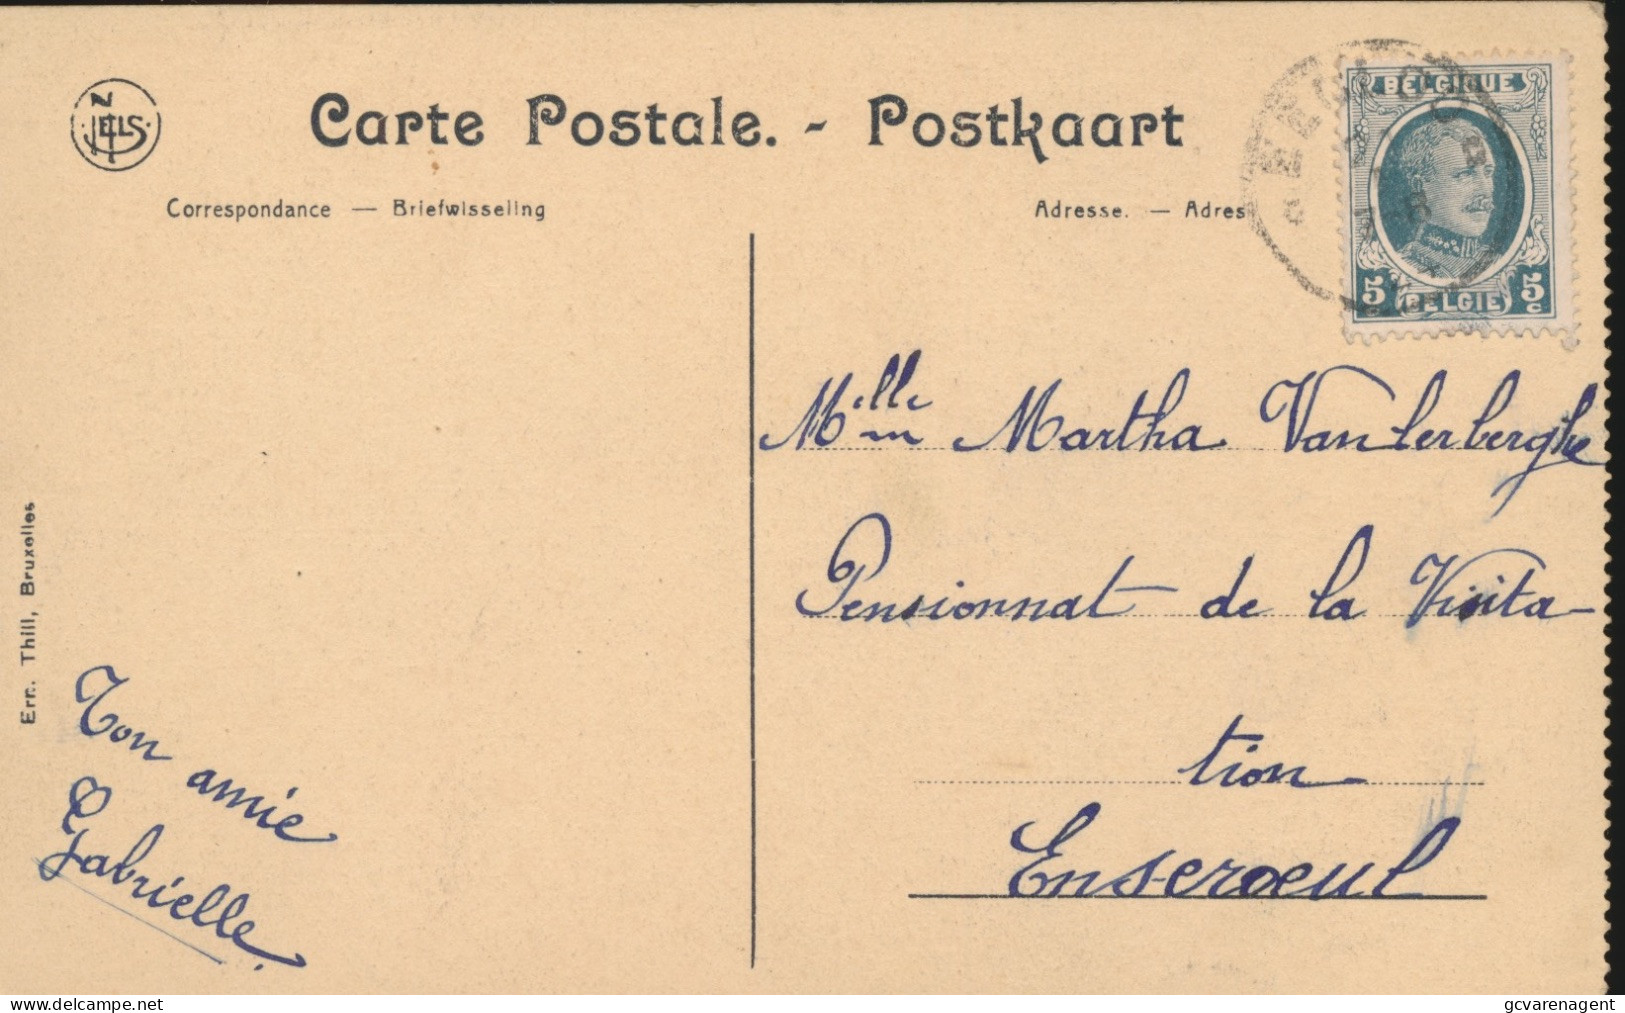 NELS
Carte Postale. - Postkaart
Correspondance — Briefwisseling
Adresse. — Adres
BELGIQUE
5 BELGIE 5
c c
Melle Martha Vanlerberghe
Pensionnat de la Visita-
tion
Enseroeul
Ern. Thill, Bruxelles
Ton amie
Gabrielle.
www.delcampe.net
gcvarenagent